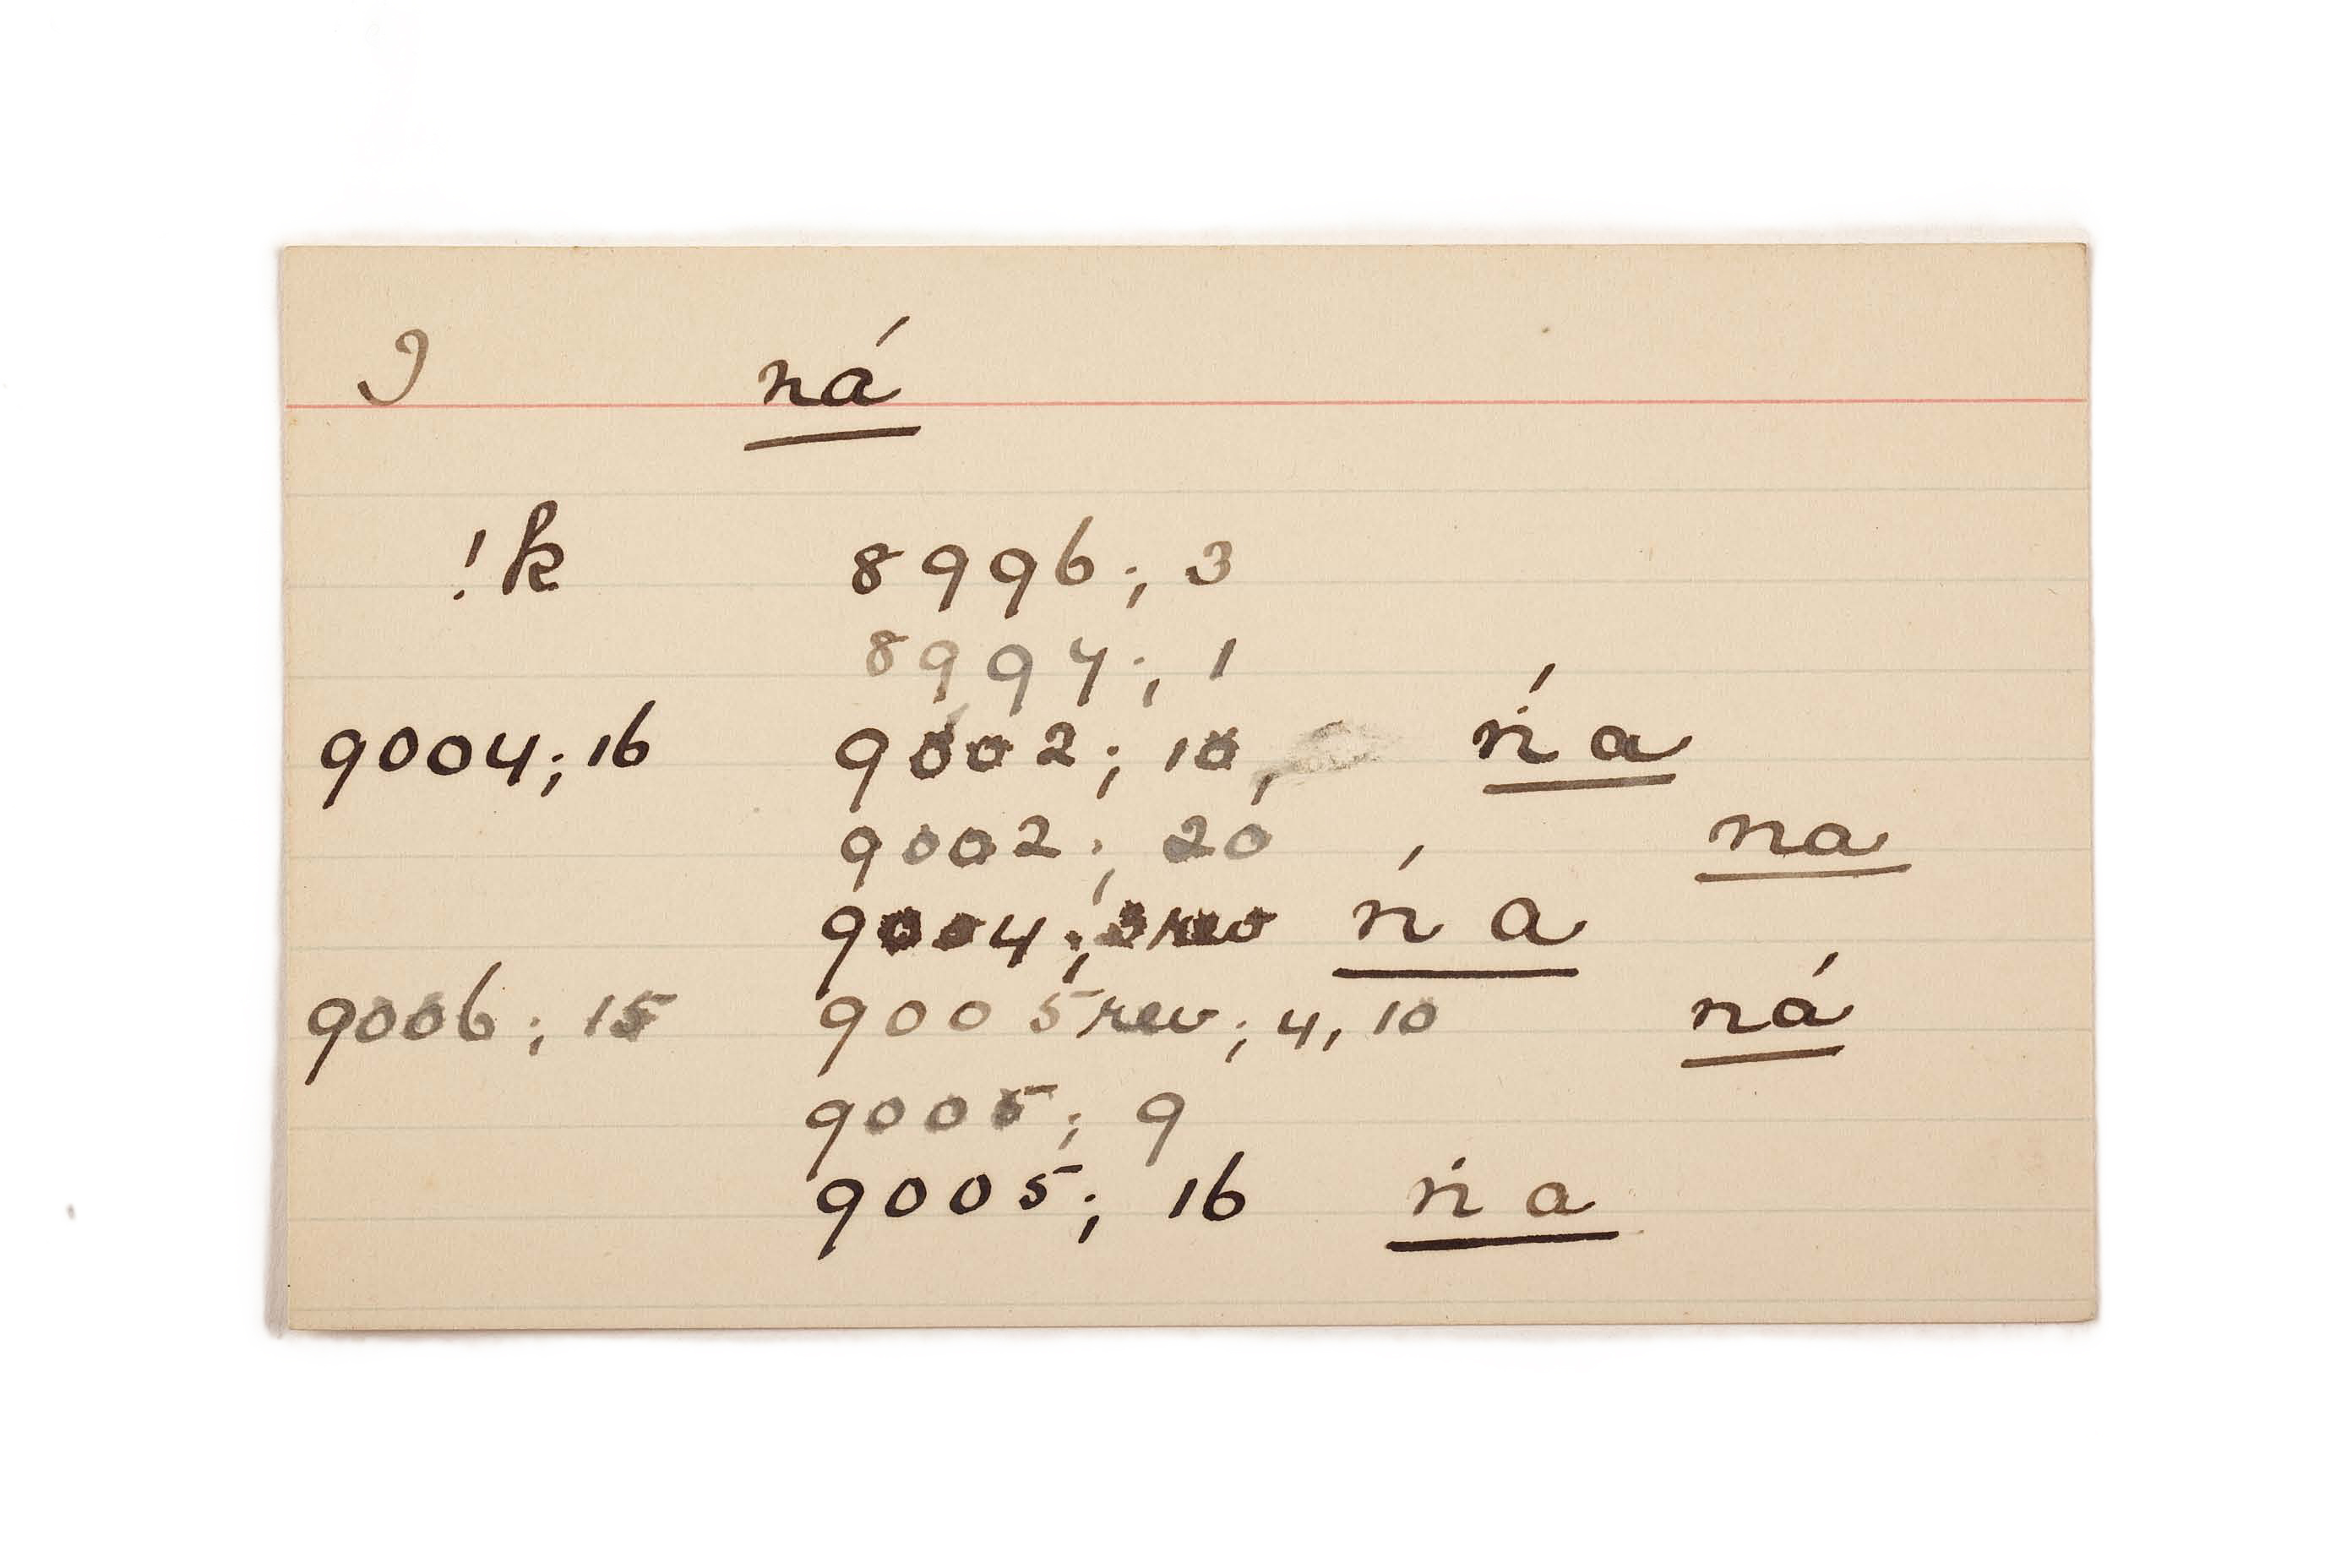 I ná
!k 8996; 3
8994; 1
9004; 16 9002; 10, ṅ́ a
9002; 20 na
9004; 3 rev ń a
9006; 15 9005 rev; 4, 10 ná
9005; 9
9005; 16 ṅ a